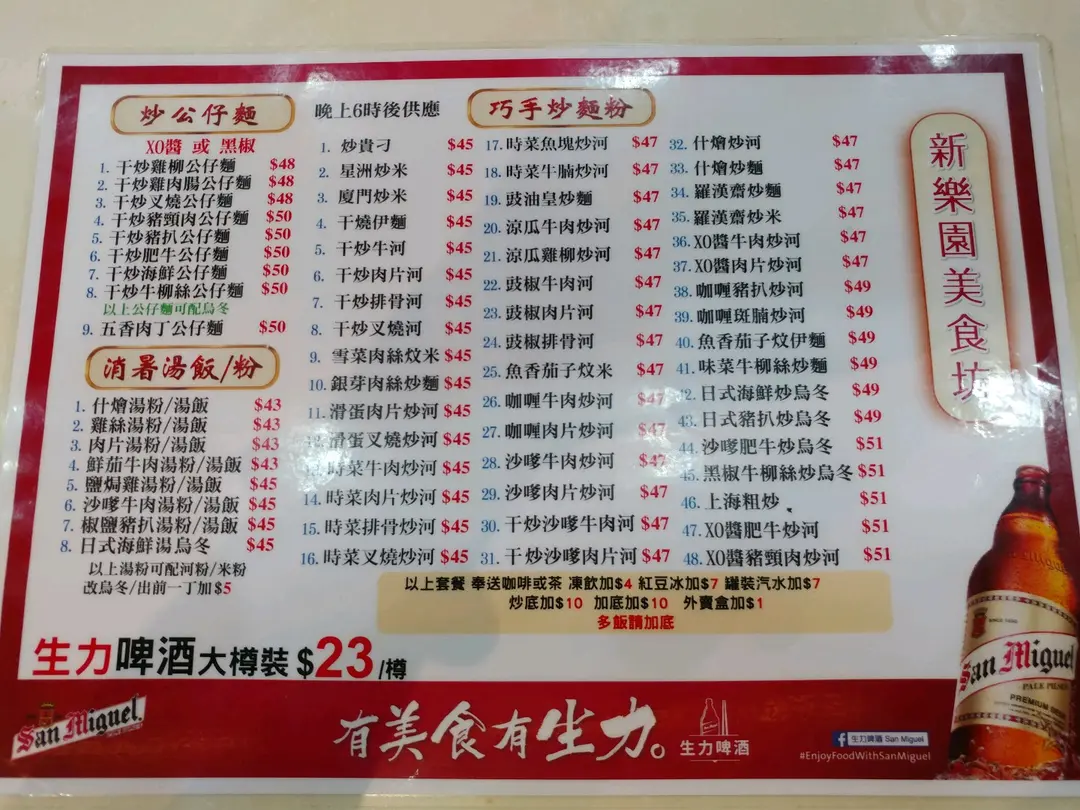 炒公仔麵
XO醬 或 黑椒
1. 干炒雞柳公仔麵 $48
2. 干炒雞肉腸公仔麵 $48
3. 干炒叉燒公仔麵 $48
4. 干炒豬頸肉公仔麵 $50
5. 干炒豬扒公仔麵 $50
6. 干炒肥牛公仔麵 $50
7. 干炒海鮮公仔麵 $50
8. 干炒牛柳絲公仔麵 $50
以上公仔麵可配烏冬
9. 五香肉丁公仔麵 $50
消暑湯飯/粉
1. 什燴湯粉/湯飯 $43
2. 雞絲湯粉/湯飯 $43
3. 肉片湯粉/湯飯 $43
4. 鮮茄牛肉湯粉/湯飯 $43
5. 鹽焗雞湯粉/湯飯 $45
6. 沙嗲牛肉湯粉/湯飯 $45
7. 椒鹽豬扒湯粉/湯飯 $45
8. 日式海鮮湯烏冬 $45
以上湯粉可配河粉/米粉
改烏冬/出前一丁加$5
晚上6時後供應
巧手炒麵粉
1. 炒貴刁 $45
2. 星洲炒米 $45
3. 廈門炒米 $45
4. 干燒伊麵 $45
5. 干炒牛河 $45
6. 干炒肉片河 $45
7. 干炒排骨河 $45
8. 干炒叉燒河 $45
9. 雪菜肉絲炆米 $45
10. 銀芽肉絲炒麵 $45
11. 滑蛋肉片炒河 $45
12. 滑蛋叉燒炒河 $45
13. 時菜牛肉炒河 $45
14. 時菜肉片炒河 $45
15. 時菜排骨炒河 $45
16. 時菜叉燒炒河 $45
17. 時菜魚塊炒河 $47
18. 時菜牛腩炒河 $47
19. 豉油皇炒麵 $47
20. 涼瓜牛肉炒河 $47
21. 涼瓜雞柳炒河 $47
22. 豉椒牛肉河 $47
23. 豉椒肉片河 $47
24. 豉椒排骨河 $47
25. 魚香茄子炆米 $47
26. 咖喱牛肉炒河 $47
27. 咖喱肉片炒河 $47
28. 沙嗲牛肉炒河 $47
29. 沙嗲肉片炒河 $47
30. 干炒沙嗲牛肉河 $47
31. 干炒沙嗲肉片河 $47
32. 什燴炒河 $47
33. 什燴炒麵 $47
34. 羅漢齋炒麵 $47
35. 羅漢齋炒米 $47
36. XO醬牛肉炒河 $47
37. XO醬肉片炒河 $47
38. 咖喱豬扒炒河 $49
39. 咖喱斑腩炒河 $49
40. 魚香茄子炆伊麵 $49
41. 味菜牛柳絲炒麵 $49
42. 日式海鮮炒烏冬 $49
43. 日式豬扒炒烏冬 $49
44. 沙嗲肥牛炒烏冬 $51
45. 黑椒牛柳絲炒烏冬 $51
46. 上海粗炒 $51
47. XO醬肥牛炒河 $51
48. XO醬豬頸肉炒河 $51
以上套餐 奉送咖啡或茶 凍飲加$4 紅豆冰加$7 罐裝汽水加$7
炒底加$10 加底加$10 外賣盒加$1
多飯請加底
新樂園美食坊
生力啤酒大樽裝 $23/樽
San Miguel
有美食有生力。
生力啤酒
生力啤酒 San Miguel
#EnjoyFoodWithSanMiguel
San Miguel
PALE PILSEN